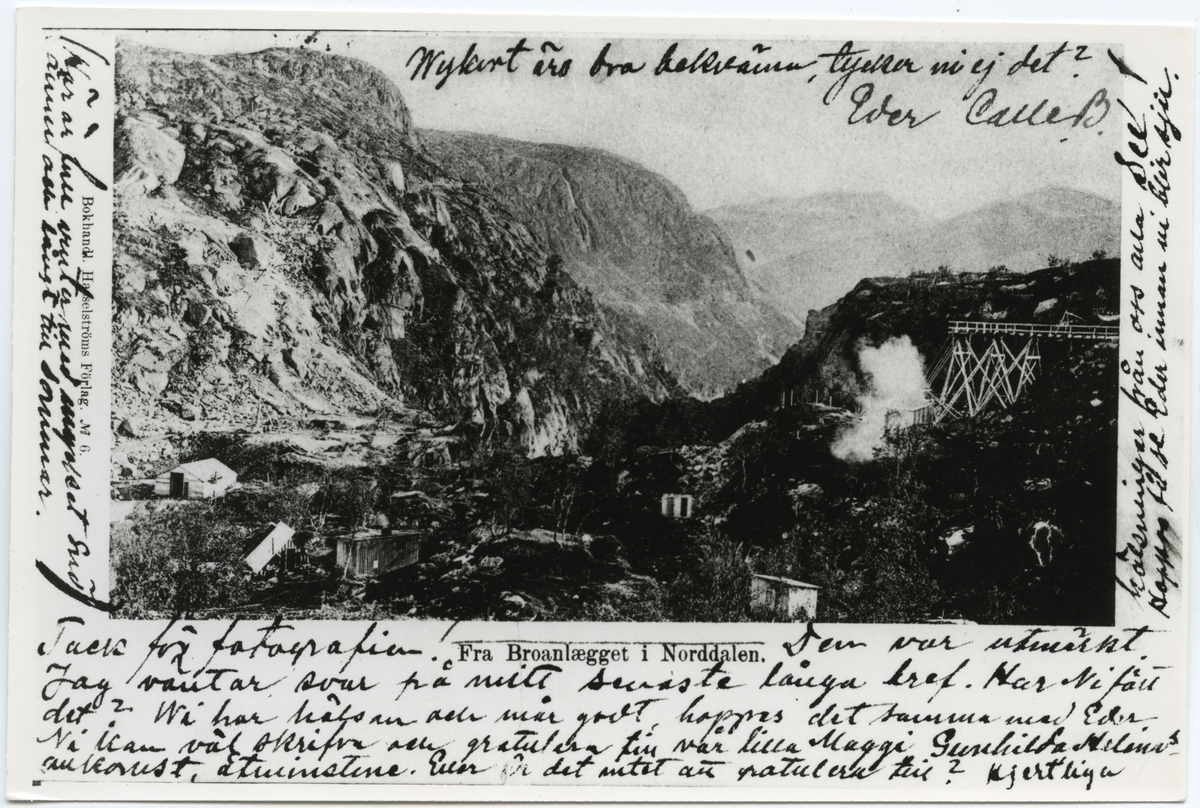 Wykort äro bra bekväma, tycker ni ej det?
Eder Calle B.
Tack för fotografien! Den var utmärkt.
Fra Broanlægget i Norddalen.
Jag väntar svar på mitt senaste långa bref. Har Ni fått
det? Wi har hälsan och mår godt, hoppas det samma med Eder
Ni kan väl skrifva och gratulera till vår lilla Maggi Gunhilda Helenas
ankomst, åtminstone. Eller är det intet att gratulera till? Hjertliga
hälsningar från oss alla
Hoppas få se Eder innan ni blir
Här är vinter med mycket Snö
ännu och långt till sommar.
Bokhandl. Hasselströms Förlag. № 6.